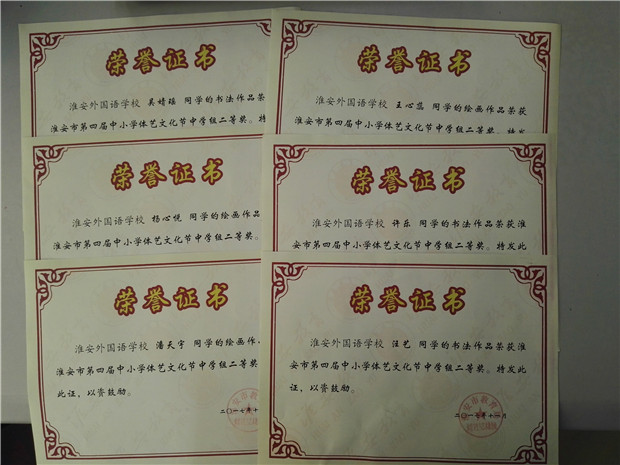 荣誉证书
淮安外国语学校 吴婧瑶 同学的书法作品荣
淮安市第四届中小学体艺文化节中学组二等奖。特
荣誉证书
淮安外国语学校 王心 同学的绘画作品荣获
淮安市第四届中小学体艺文化节中学组二等奖。特发
荣誉证书
淮安外国语学校 杨心悦 同学的绘画作品
淮安市第四届中小学体艺文化节中学组二等奖。
荣誉证书
淮安外国语学校 许乐 同学的书法作品荣获淮
安市第四届中小学体艺文化节中学组二等奖。特发此
荣誉证书
淮安外国语学校 潘天宇 同学的绘画作
淮安市第四届中小学体艺文化节中学组二等奖
此证，以资鼓励。
二〇一七年十
荣誉证书
淮安外国语学校 汪艺 同学的书法作品荣获淮
安市第四届中小学体艺文化节中学组二等奖。特发此
证，以资鼓励。
安市教育